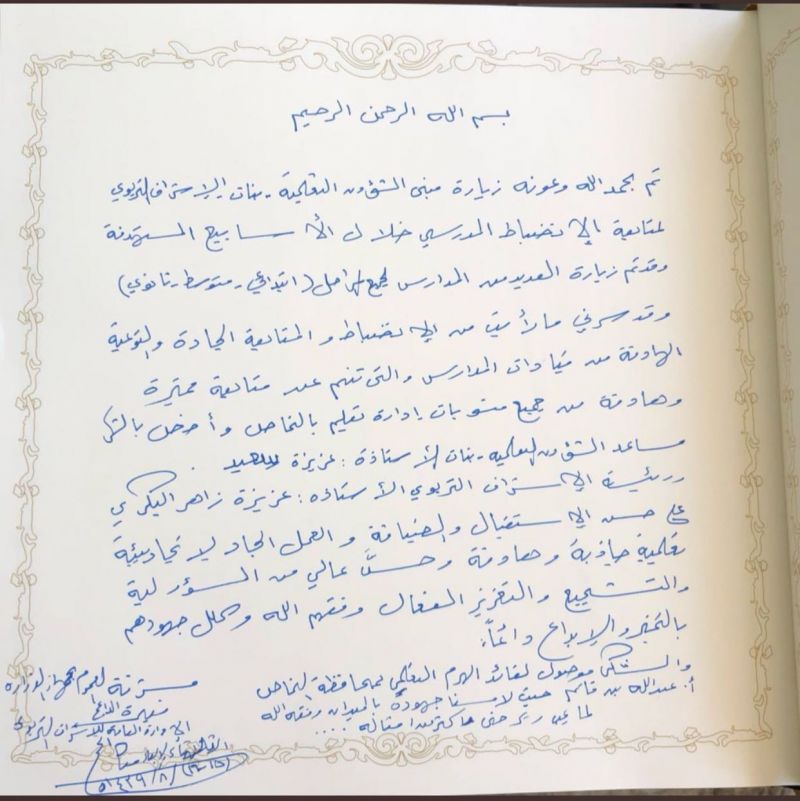 بسم الله الرحمن الرحيم
تم بحمد الله وعونه زيارة مبنى الشؤون التعليمية - بنات - الإشراف التربوي
لمتابعة الإنضباط المدرسي خلال الأسابيع المستهدفة
وقد تم زيارة العديد من المدارس لجميع المراحل (ابتدائي - متوسط - ثانوي)
وقد سرني ما رأيت من الإنضباط والمتابعة الجادة والتوعية
الهادفة من قيادات المدارس والتي تنم عن متابعة مميزة
وهادفة من جميع منسوبات إدارة تعليم بالنماص وأخص بالشكر
مساعد الشؤون التعليمية - بنات الأستاذة : عزيزة
ورئيسة الإشراف التربوي الأستاذه : عزيزة زاهر البكري
على حسن الإستقبال والضيافة والعمل الجاد لإيجاد بيئة
تعليمية جاذبة وهادفة وحسٍّ عالي من المسؤولية
والتشجيع والتعزيز الفعال وفقهم الله وكلل جهودهم
بالتميز والإبداع دائماً،
والشكر موصول لقائد الهرم التعليمي بمحافظة النماص
أ. عبدالله بن قاسم حيث لامسنا جهوده بالميدان وفقه الله
لما يحب ويرضى وكثر من أمثاله ....
مشرفة عموم بجهاز الوزارة
الإدارة العامة للإشراف التربوي
١٤٣٩/٨/